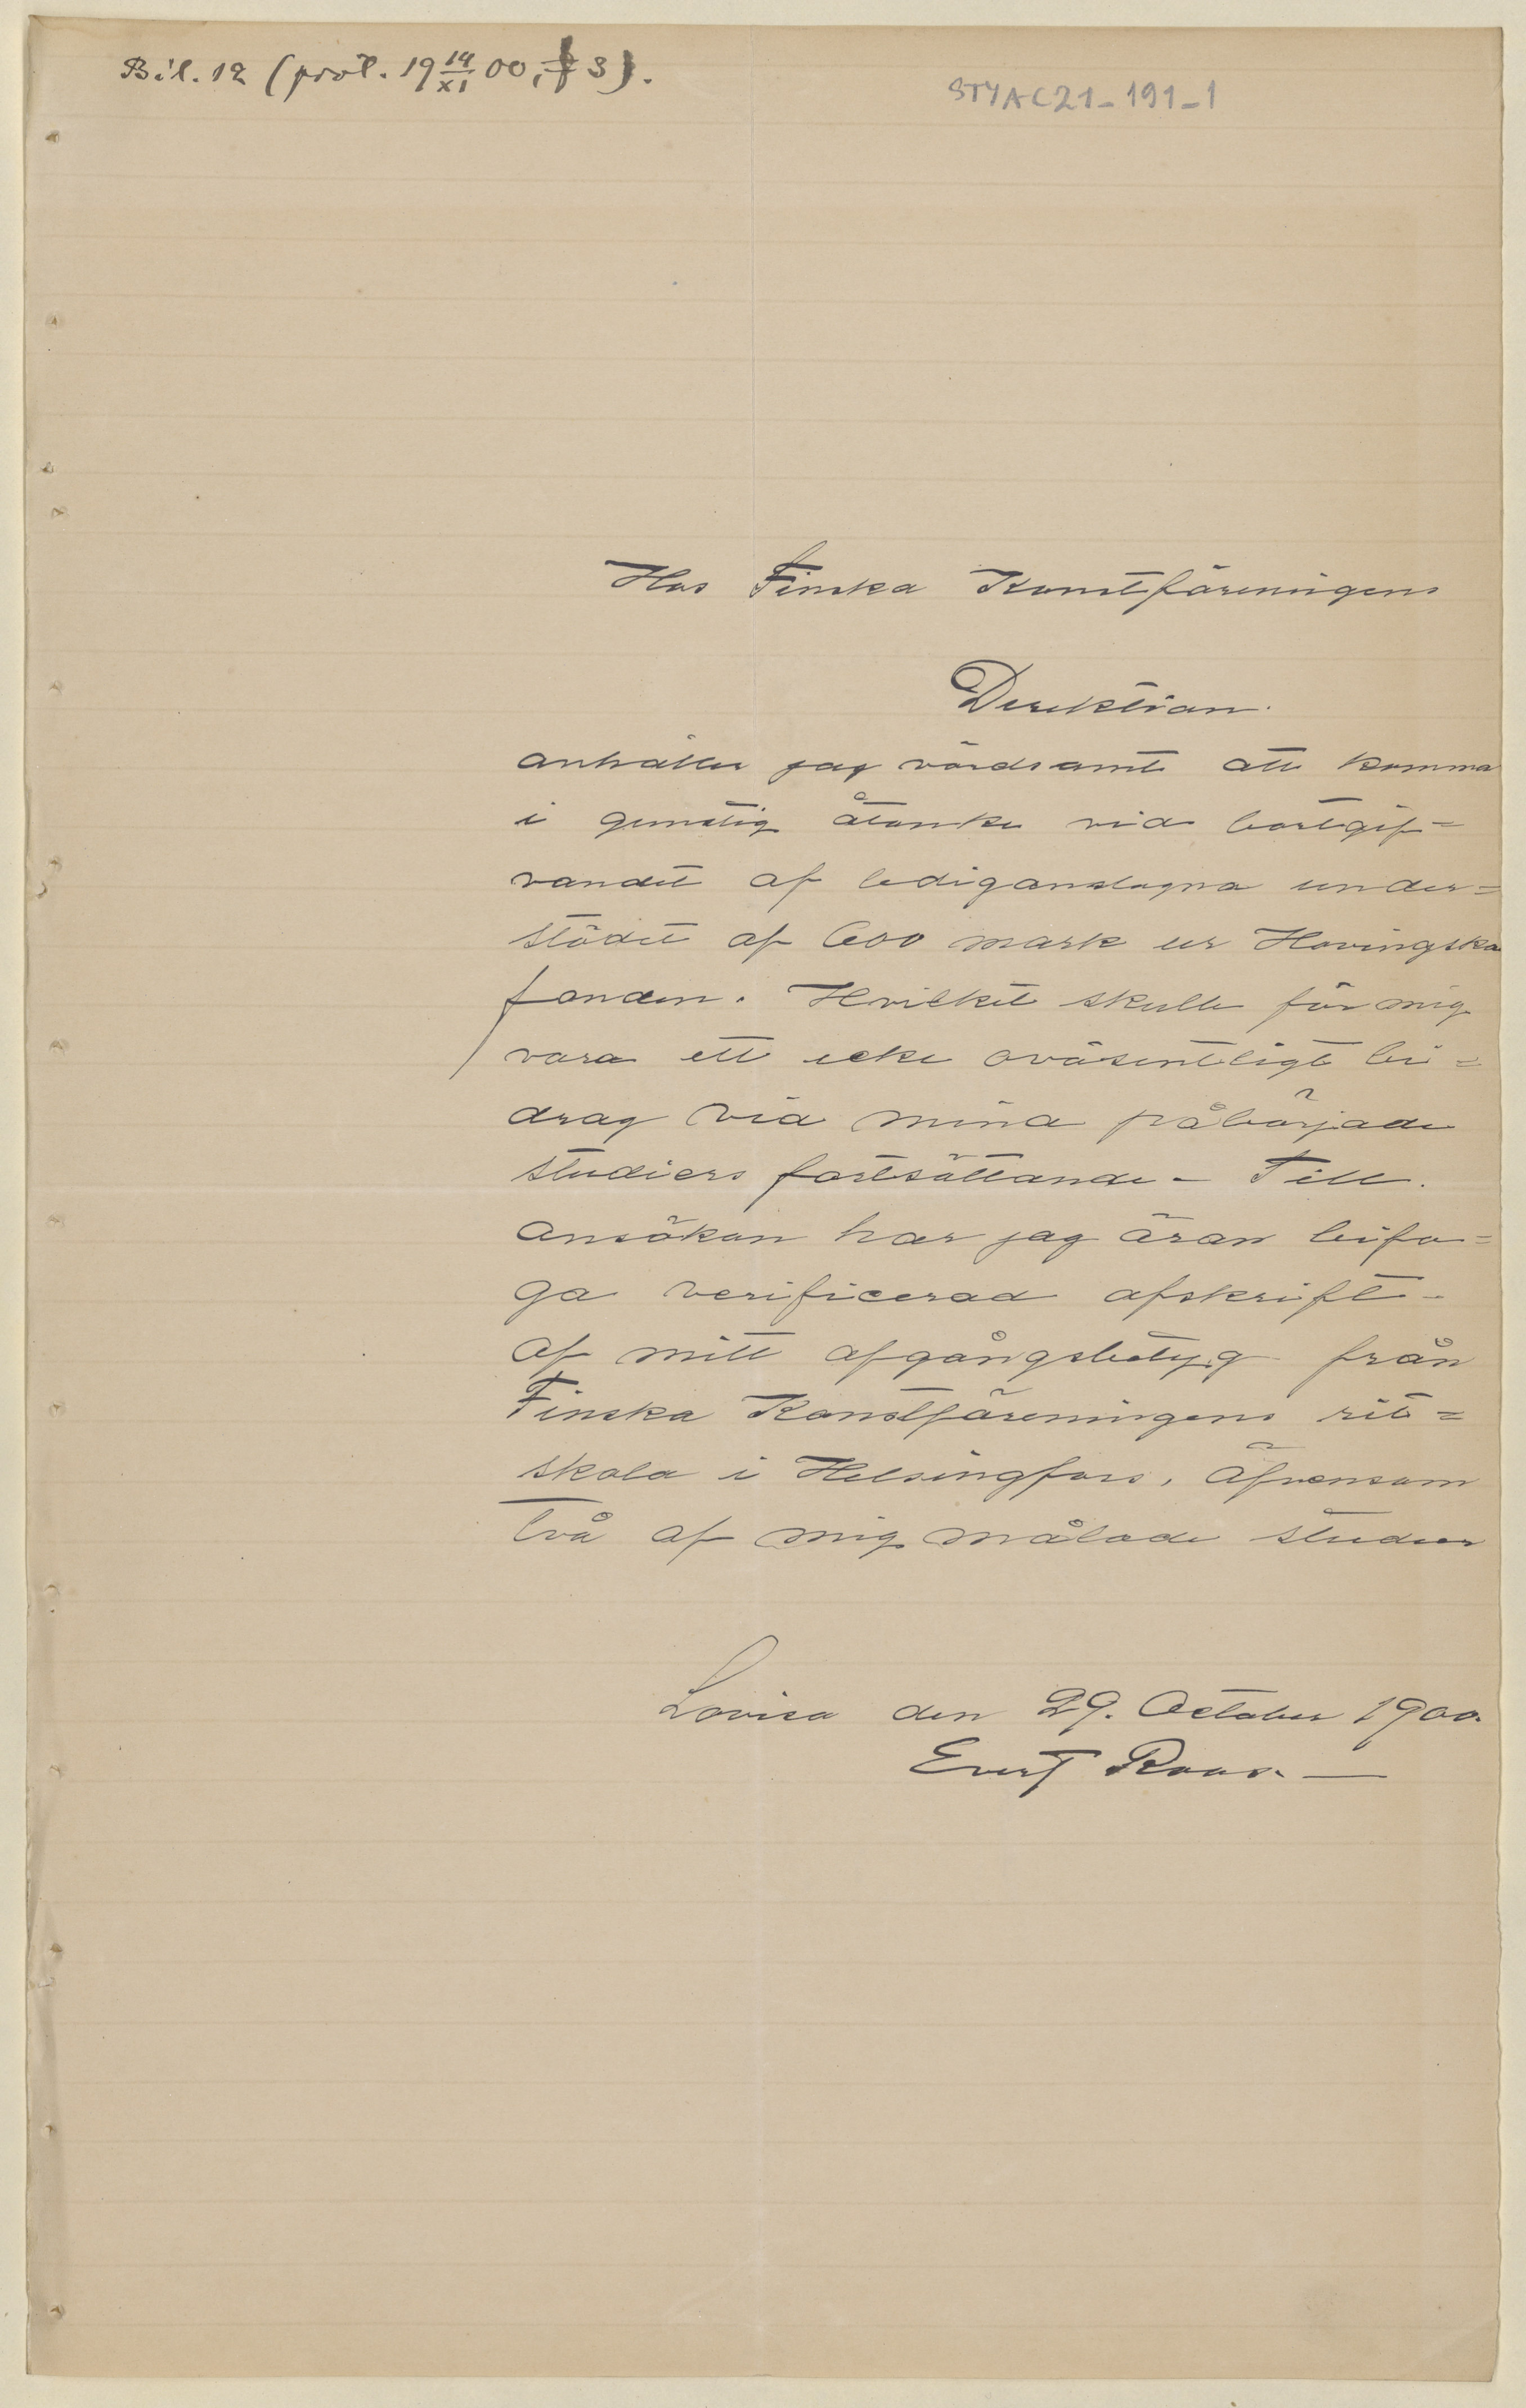 Bil. 12 (prot. 19 14/XI 00, § 3).
STYAC21-191-1
Hos Finska Konstföreningens
Direktion.
anhåller jag vördsamt att komma
i gunstig åtanke vid bortgif=
vandet af lediganslagna under=
stödet af 600 mark ur Hovingska
fonden. Hvilket skulle för mig
vara ett icke oväsentligt bi=
drag vid mina påbörjade
studiers fortsättande - Till
ansökan har jag äran bifo=
ga verificerad afskrift
af mitt afgångsbetyg från
Finska Konstföreningens rit=
skola i Helsingfors, äfvensom
två af mig målade studier
Lovisa den 29. October 1900.
Evert Roos.